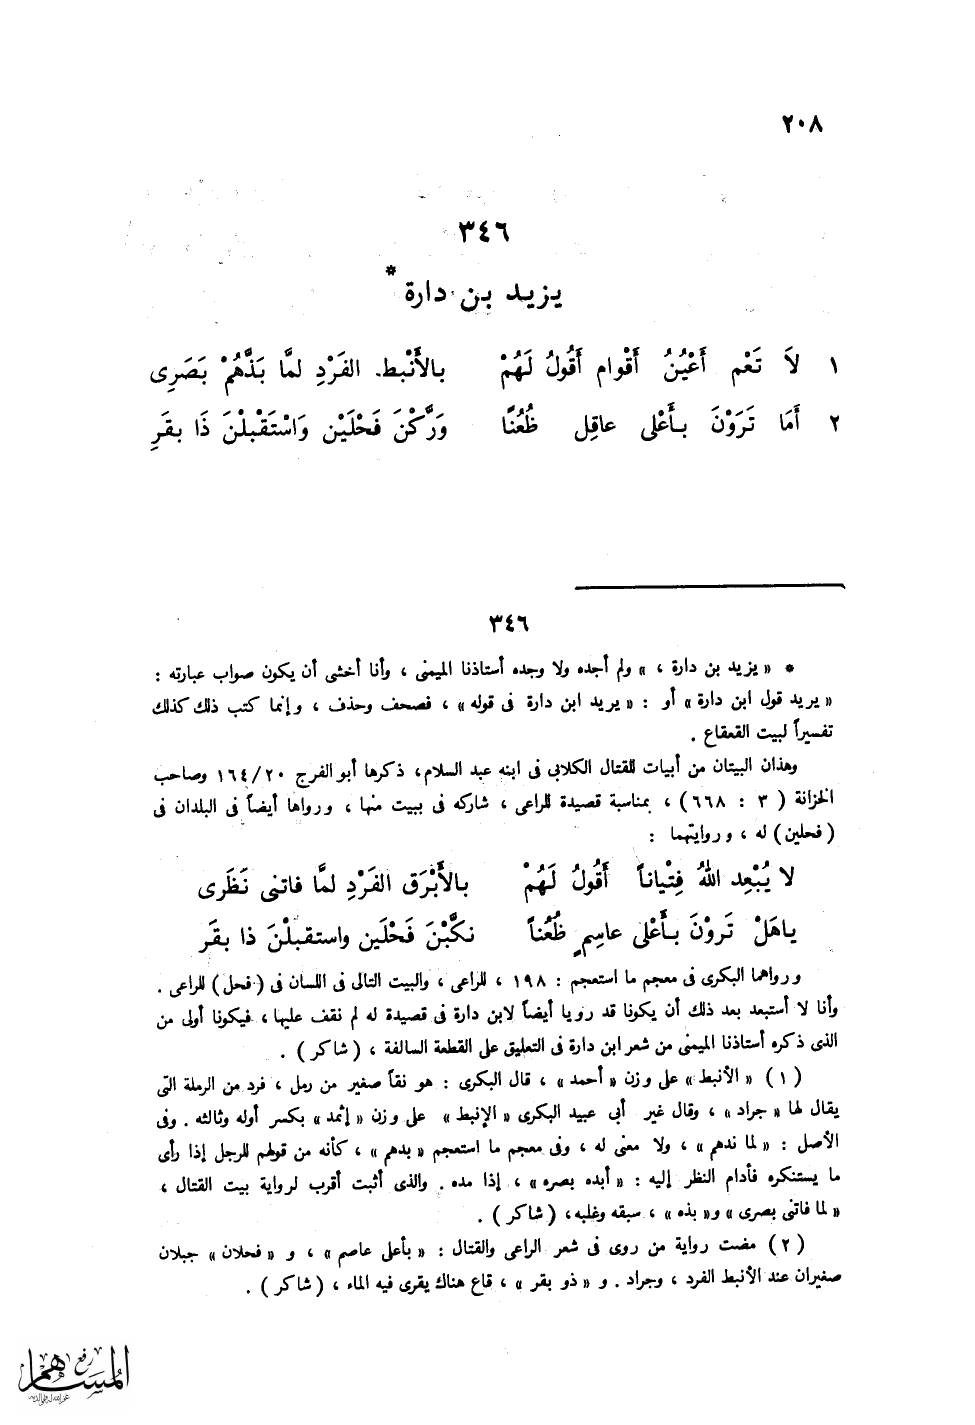 ٢٠٨
٣٤٦
يزيد بن دارة *
١ لاَ تَعْم أَعْيُنُ أَقْوام أَقُولُ لَهُمْ بالأَنْبط الفَرْدِ لمَّا بَذَّهُمْ بَصَرِى
٢ أَمَا تَرَوْنَ بأَعْلى عاقِل ظُعُنًا وَرَّكْنَ فَحْلَيْن وَاسْتَقْبلْنَ ذَا بقَرِ
٣٤٦
* « يزيد بن دارة ، » ولم أجده ولا وجده أستاذنا الميمنى ، وأنا أخشى أن يكون صواب عبارته :
« يريد قول ابن دارة » أو : « يريد ابن دارة فى قوله » ، فصحف وحذف ، وإنما كتب ذلك كذلك
تفسيراً لبيت القعقاع .
وهذان البيتان من أبيات للقتال الكلابى فى ابنه عبد السلام ، ذكرها أبو الفرج ٢٠/١٦٤ وصاحب
الخزانة ( ٣ : ٦٦٨ ) ، بمناسبة قصيدة للراعى ، شاركه فى ببيت منها ، ورواها أيضاً فى البلدان فى
( فحلين ) له ، وروايتهما :
لا يُبْعِد اللهُ فِتْياناً أَقُولُ لَهُمْ بالأَبْرَق الفَرْدِ لمَّا فاتنى نَظَرى
ياهَلْ تَروْنَ بأَعْلى عاسِمٍ ظُعُناً نكَّبْنَ فَحْلَين واستقبلْنَ ذا بقَر
ورواهما البكرى فى معجم ما استعجم : ١٩٨ ، للراعى ، والبيت التالى فى اللسان فى ( فحل ) للراعى .
وأنا لا أستبعد بعد ذلك أن يكونا قد رويا أيضاً لابن دارة فى قصيدة له لم نقف عليها ، فيكونا أولى من
الذى ذكره أستاذنا الميمنى من شعر ابن دارة فى التعليق على القطعة السالفة ، ( شاكر ) .
( ١ ) « الأنبط » على وزن « أحمد » ، قال البكرى : هو نقاً صغير من رمل ، فرد من الرملة التى
يقال لها « جراد » ، وقال غير أبى عبيد البكرى « الإنبط » على وزن « إثمد » بكسر أوله وثالثه . وفى
الأصل : « لما ندهم » ، ولا معنى له ، وفى معجم ما استعجم « بدهم » ، كأنه من قولهم للرجل إذا رأى
ما يستنكره فأدام النظر إليه : « أبده بصره » ، إذا مده . والذى أثبت أقرب لرواية بيت القتال ،
« لما فاتنى بصرى » و« بذه » ، سبقه وغلبه ، ( شاكر ) .
( ٢ ) مضت رواية من روى فى شعر الراعى والقتال : « بأعلى عاصم » ، و « فحلان » جبلان
صغيران عند الأنبط الفرد ، وجراد . و « ذو بقر » ، قاع هناك يقرى فيه الماء ، ( شاكر ) .